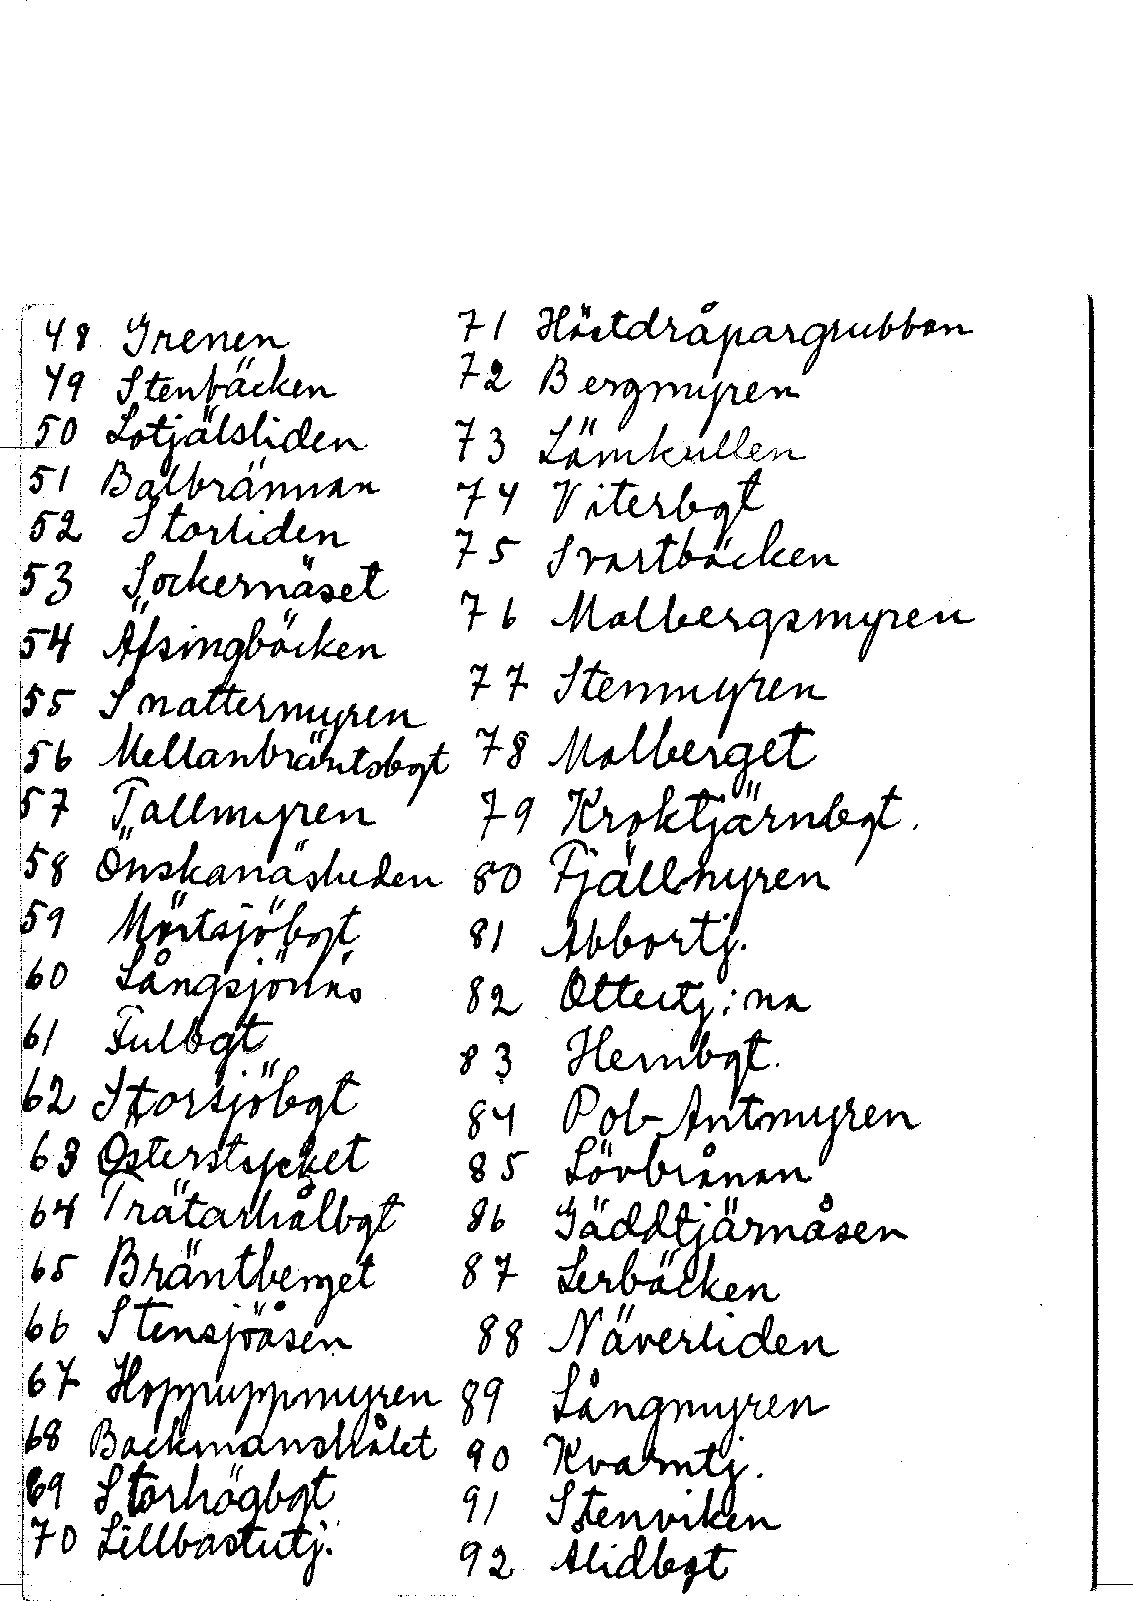 48 Grenen
49 Stenbäcken
50 Lotjälsliden
51 Balbrännan
52 Storliden
53 Sockernäset
54 Äfsingbäcken
55 Snattermyren
56 Mellanbräntsbgt
57 Tallmyren
58 Önskanäsheden
59 Mörtsjöbgt
60 Långsjönäs
61 Fulbgt
62 Storsjöbgt
63 Österstycket
64 Trätarhålbgt
65 Bräntberget
66 Stensjöåsen
67 Hoppuppmyren
68 Backmanshålet
69 Storhögbgt
70 Lillbastutj.
71 Hästdråpargrubban
72 Bergmyren
73 Lämkullen
74 Viterbgt
75 Svartbäcken
76 Malbergsmyren
77 Stenmyren
78 Malberget
79 Kroktjärnbgt.
80 Fjällmyren
81 Abbortj.
82 Ottertj:na
83 Hembgt.
84 Pob-Antmyren
85 Lövbrånan
86 Gäddtjärnåsen
87 Lerbäcken
88 Näverliden
89 Långmyren
90 Kvarntj.
91 Stenviken
92 Alidbgt